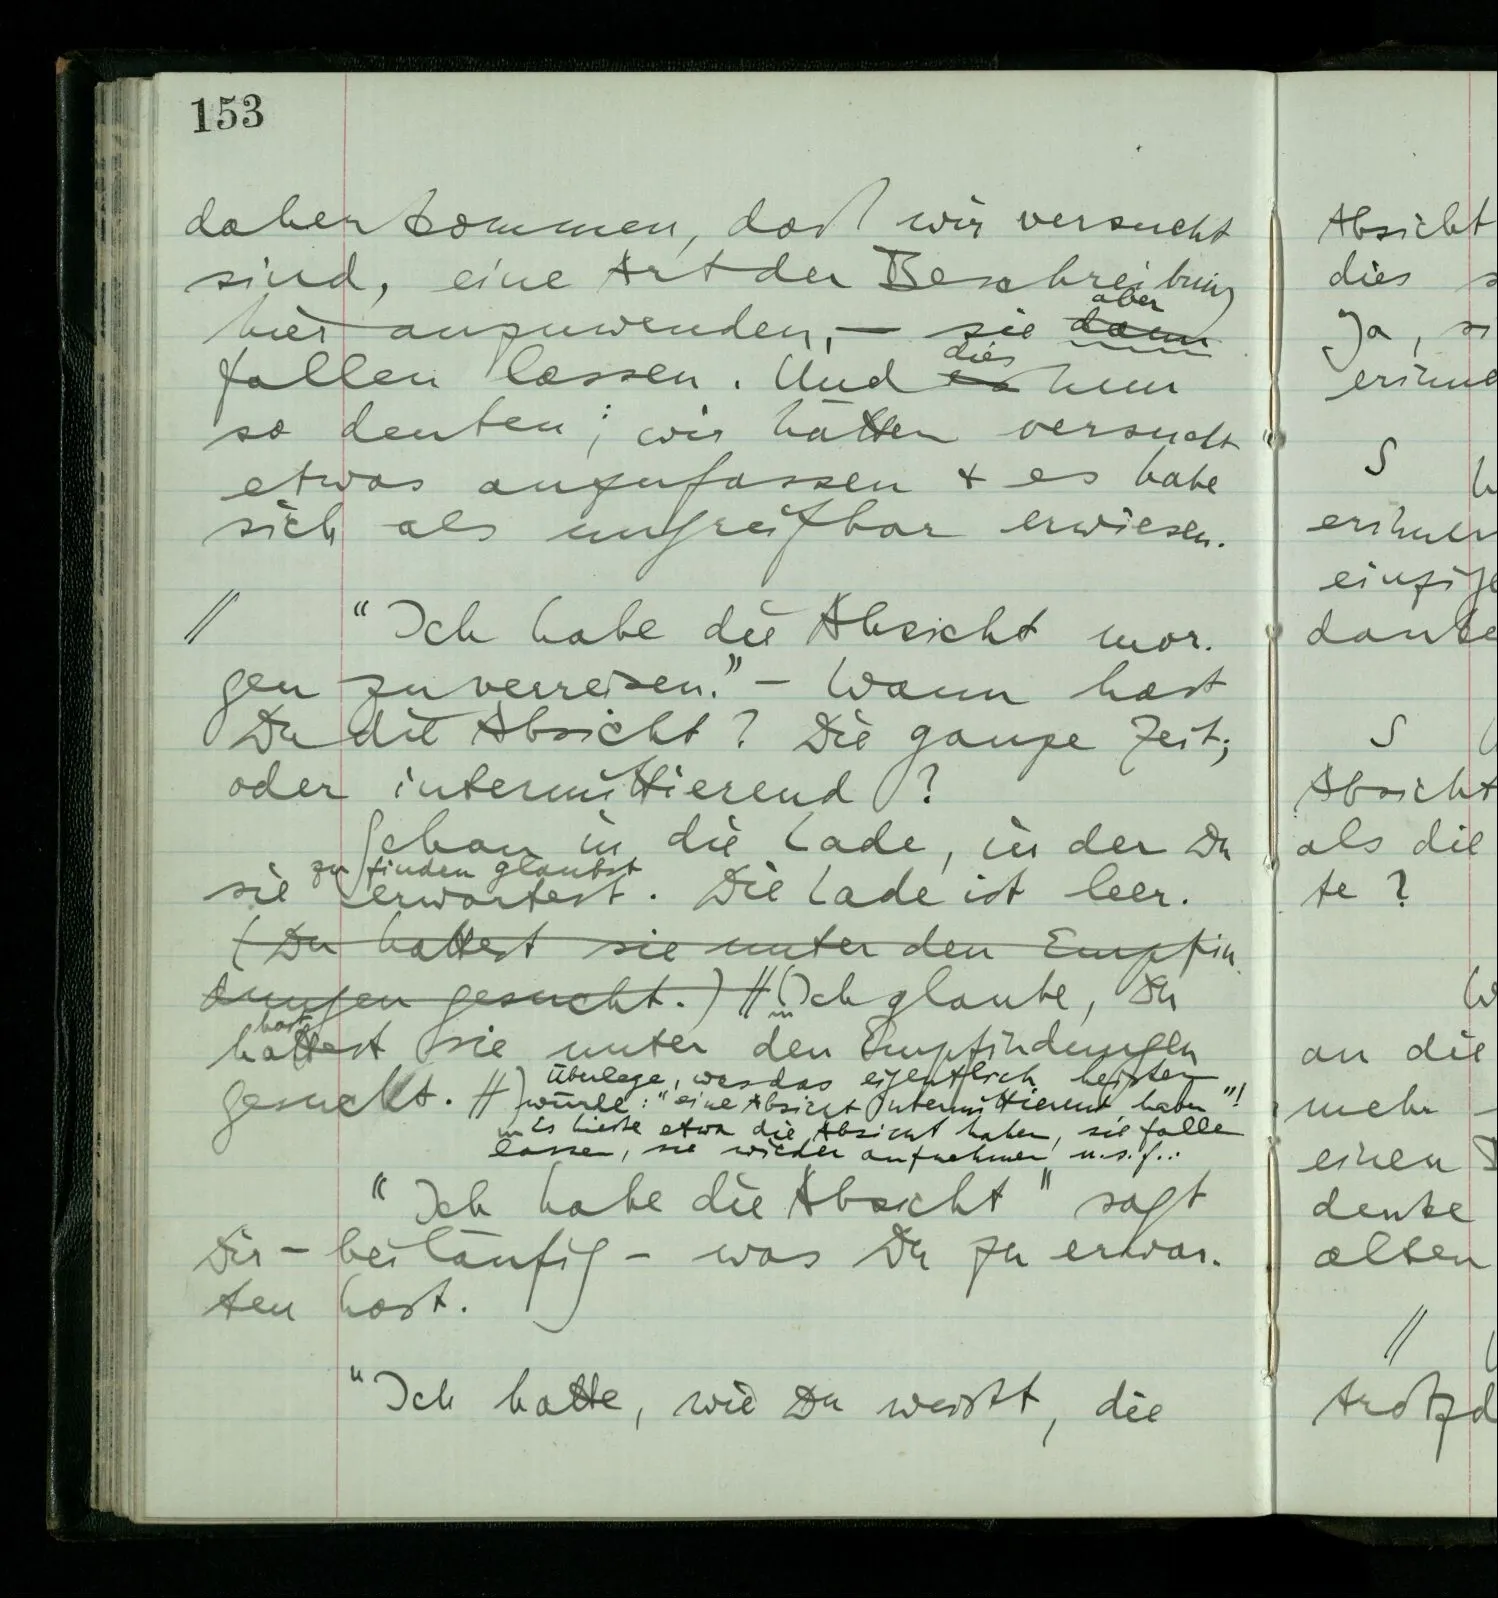 153
daherkommen, daß wir versucht
sind, eine Art der Beschreibung
aber
hier anzuwenden, — sie dann
dies
fallen lassen. Und es nun
so deuten; wir hätten versucht
etwas anzufassen & es habe
sich als ungreifbar erwiesen.
// "Ich habe die Absicht mor-
gen zu verreisen." – Wann hast
Du die Absicht? Die ganze Zeit;
oder intermittierend?
Schau in die Lade, in der Du
zu finden glaubst
sie erwartest. Die Lade ist leer.
(Du hattest sie unter den Empfin-
dungen gesucht.) // (Ich glaube, Du
hast
hattest sie unter den Empfindungen
gesucht. //)
Überlege, was das eigentlich heißen
würde: "eine Absicht intermittierend haben"!
Es hieße etwa die Absicht haben, sie fallen
lassen, sie wieder aufnehmen u.s.f..
"Ich habe die Absicht" sagt
Dir – beiläufig – was Du zu erwar-
ten hast.
"Ich hatte, wie Du weißt, die
Absicht
dies
Ja,
S
S
Absicht
als die
te?
an die
mehr
einen
denke
alten
//